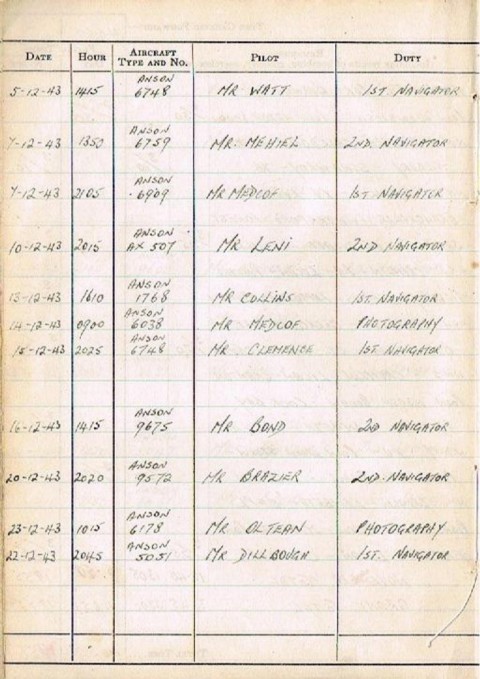 DATE HOUR AIRCRAFT TYPE AND NO. PILOT DUTY
5-12-43 1415 ANSON 6748 MR WATT 1ST NAVIGATOR
7-12-43 1350 ANSON 6759 MR. MEHIEL 2ND. NAVIGATOR
7-12-43 2105 ANSON 6909 MR MEDCOF 1ST NAVIGATOR
10-12-43 2015 ANSON AX 507 MR LENI 2ND NAVIGATOR
13-12-43 1610 ANSON 1768 MR COLLINS 1ST. NAVIGATOR
14-12-43 0900 ANSON 6038 MR MEDCOF PHOTOGRAPHY
15-12-43 2025 ANSON 6748 MR CLEMENCE 1ST NAVIGATOR
16-12-43 1415 ANSON 9675 MR BOND 2ND NAVIGATOR
20-12-43 2020 ANSON 9572 MR BRAZIER 2ND. NAVIGATOR
23-12-43 1015 ANSON 6178 MR OLTEAN PHOTOGRAPHY
22-12-43 2045 ANSON 5051 MR DILLBOUGH 1ST. NAVIGATOR